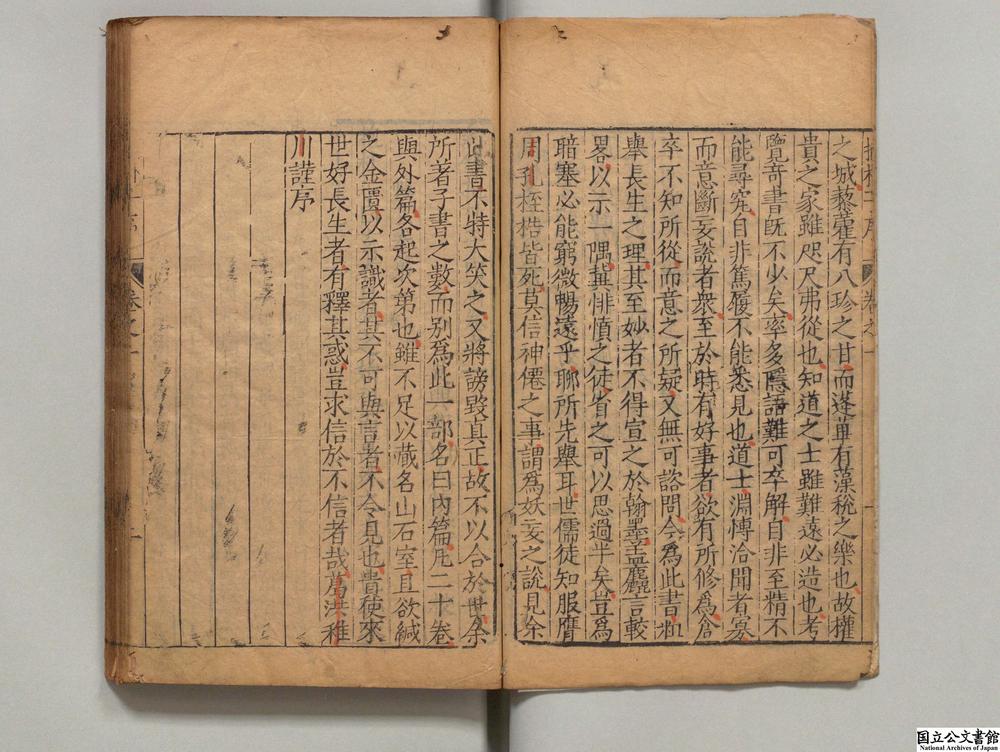 之城藜藿有八珍之甘而蓬蓽有藻梲之樂也故權
貴之家雖咫尺弗從也知道之士雖難遠必造也考
覽奇書旣不少矣率多隱語難可卒解自非至精不
能尋究自非篤履不能悉見也道士淵博洽聞者寡
而意斷妄說者衆至於時有好事者欲有所修爲倉
卒不知所從而意之所疑又無可諮問今爲此書粗
舉長生之理其至妙者不得宣之於翰墨盖麤言較
畧以示一隅冀悱憤之徒省之可以思過半矣豈爲
暗塞必能窮微暢遠乎聊所先舉耳世儒徒知服膺
周孔桎梏皆死莫信神僊之事謂爲妖妄之說見余
此書不特大笑之又將謗毀真正故不以合於世余
所著子書之數而別為此一部名曰內篇凡二十卷
與外篇各起次第也雖不足以藏名山石室且欲緘
之金匱以示識者其不可與言者不令見也貴使來
世好長生者有釋其惑豈求信於不信者哉葛洪稚
川謹序
国立公文書館
National Archives of Japan